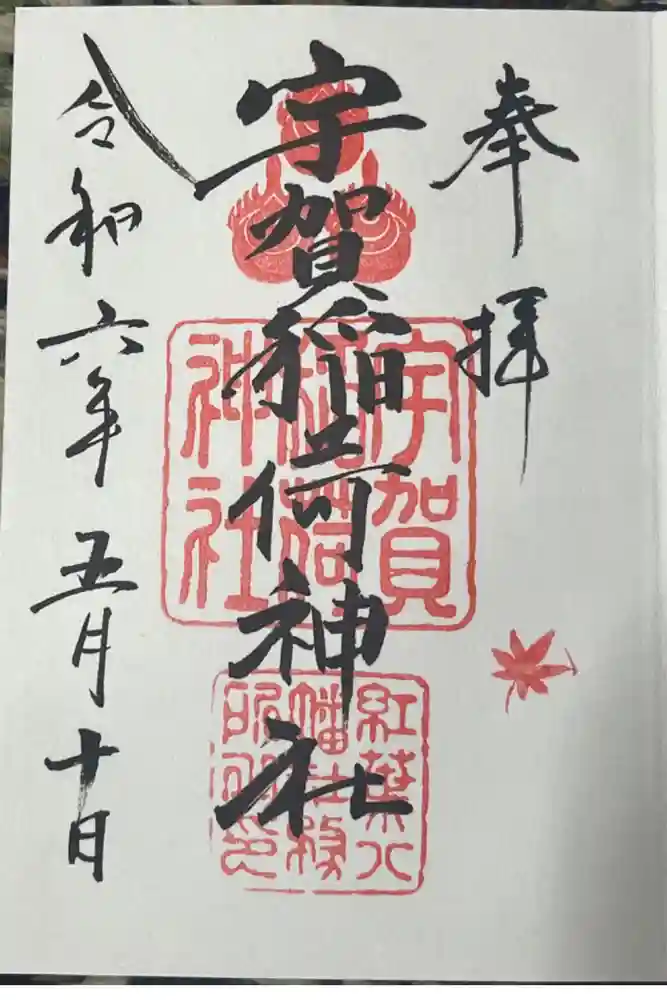 奉拝
宇賀稲荷神社
令和六年五月十日
宇賀
稲荷
神社
紅葉八
幡社務
所之印